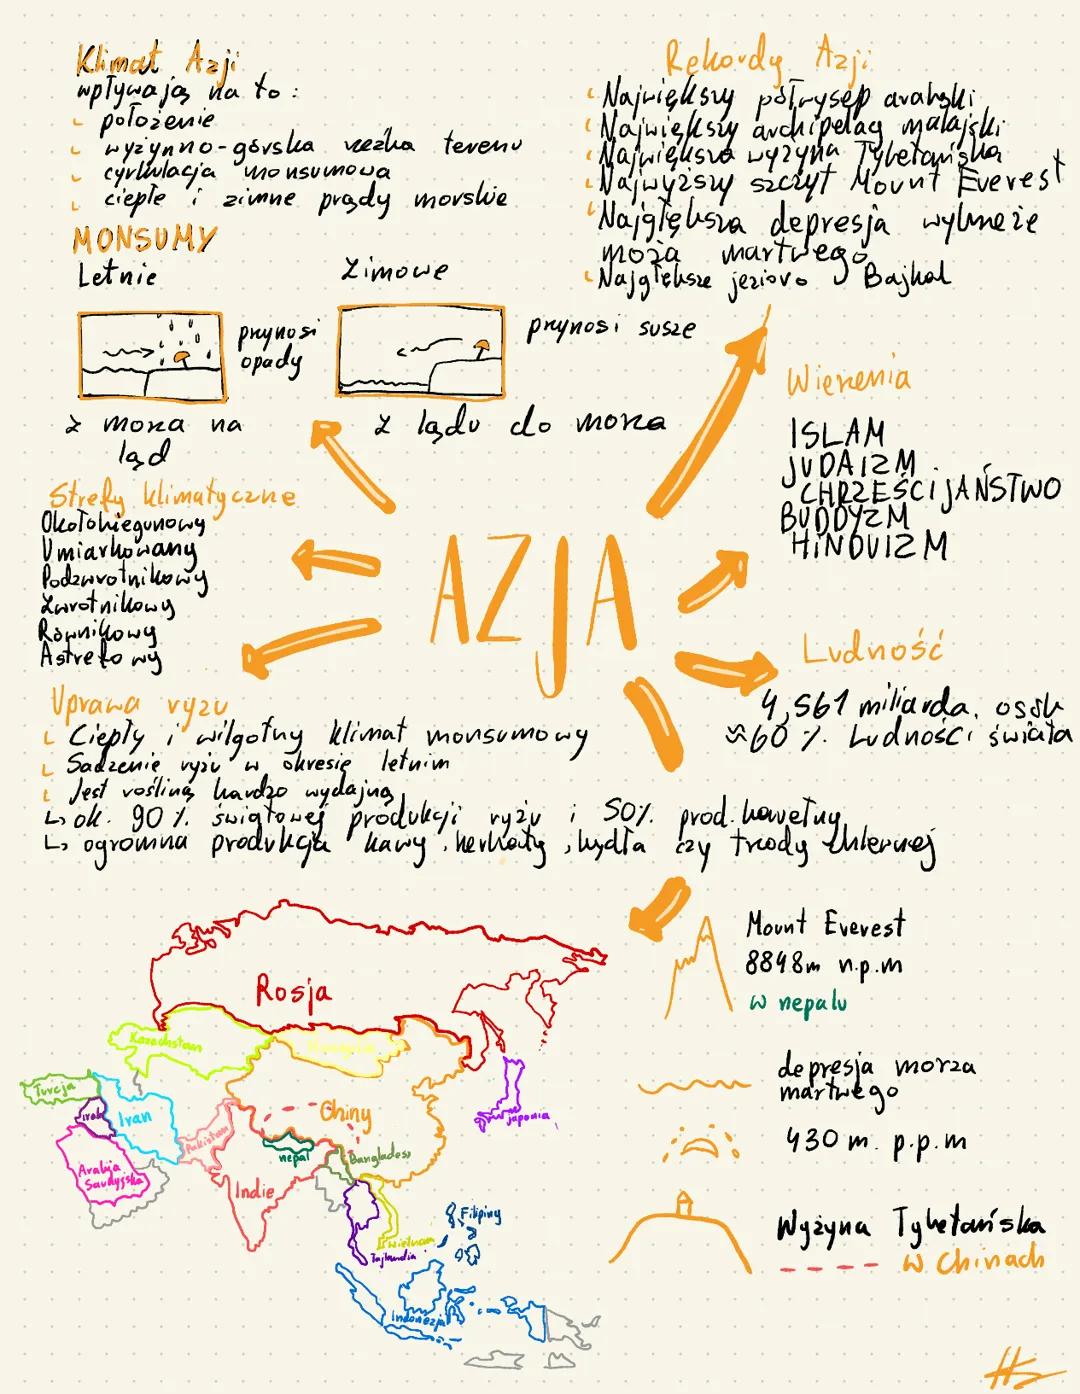 Klimat Azji
wpływają na to:
położenie
wyżynno-górska rzeźba terenu
cyrkulacja monsumowa
ciepłe i zimne prądy morskie
MONSUMY
Letnie
Zimowe
przynosi
opady
przynosi susze
z morza na
ląd
z lądu do morza
Strefy klimatyczne
Okołobiegunowy
Umiarkowany
Podzwrotnikowy
Zwrotnikowy
Równikowy
Astrefowy
Uprawa ryżu
Ciepły i wilgotny klimat monsumowy
Sadzenie ryżu w okresie letnim
Jest rośliną bardzo wydajną
↳ ok. 90 % światowej produkcji ryżu i 50% prod. bawełny
↳ ogromna produkcja kawy, herbaty, bydła czy trzody chlewnej
AZJA
Rekordy Azji
Największy półwysep arabski
Największy archipelag malajski
Największa wyżyna Tybetańska
Najwyższy szczyt Mount Everest
Najgłębsza depresja wybrzeże
morza martwego
Najgłębsze jezioro Bajkał
Wierzenia
ISLAM
JUDAIZM
CHRZEŚCIJAŃSTWO
BUDDYZM
HINDUIZM
Ludność
4,561 miliarda. osób
≈60 %. Ludności świata
Rosja
Kazachstan
Mongolia
Turcja
Irak
Iran
Pakistan
Chiny
nepal
Bangladesz
Arabia
Saudyjska
Indie
japonia
Wietnam
Tajlandia
Filipiny
Indonezja
Mount Everest
8848m n.p.m
w nepalu
depresja morza
martwego
430 m. p.p.m
Wyżyna Tybetańska
w Chinach